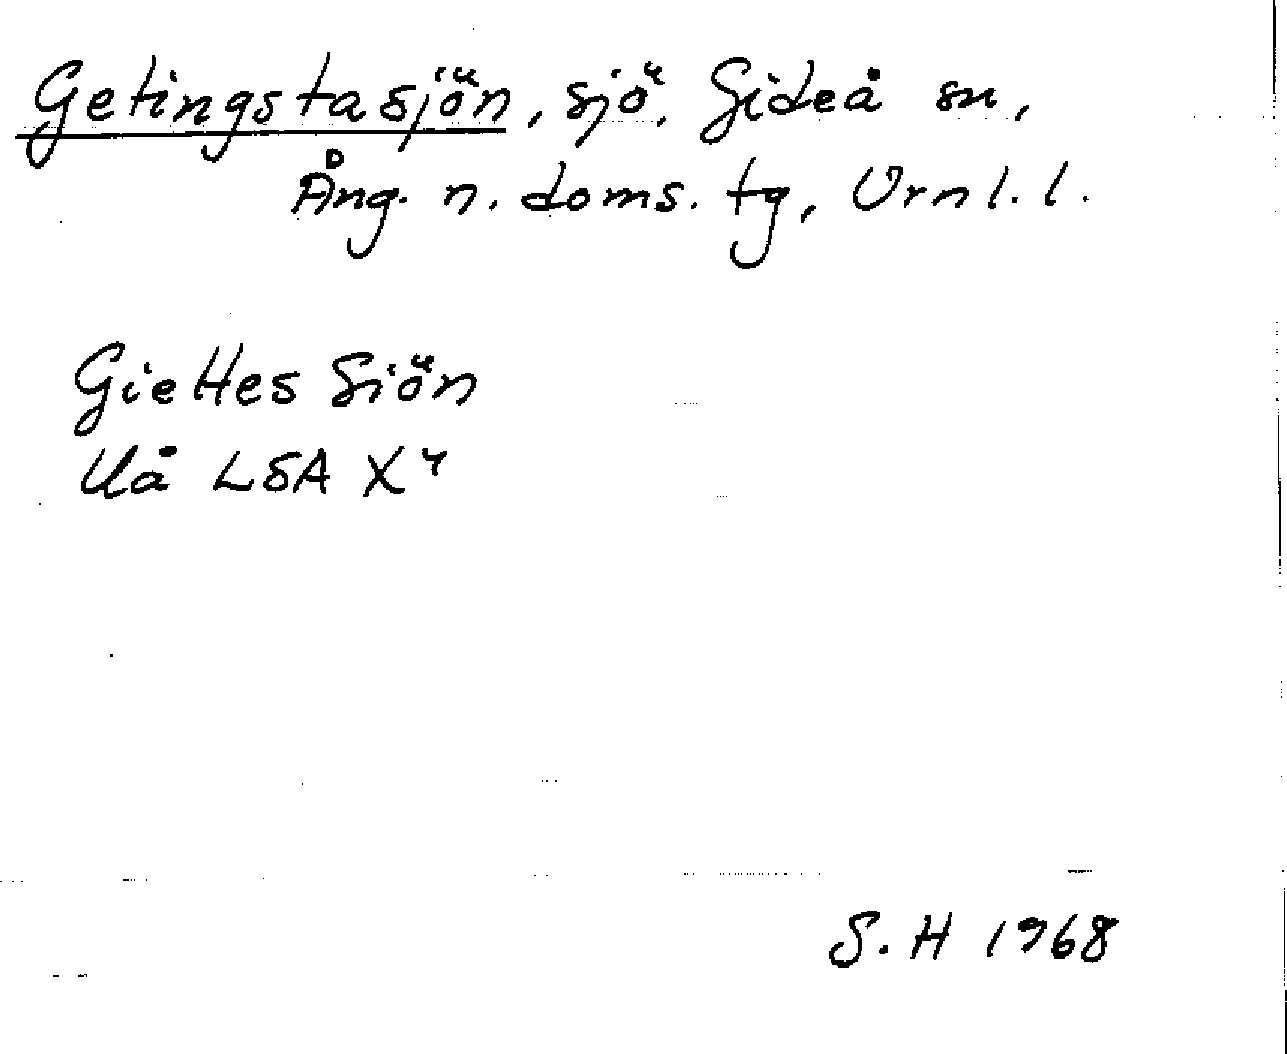 Getingstasjön, sjö, Gideå sn,
Ång. n. doms. tg, Örnl. l.
Giettes Siön
Uå LSA X4
S.H 1968